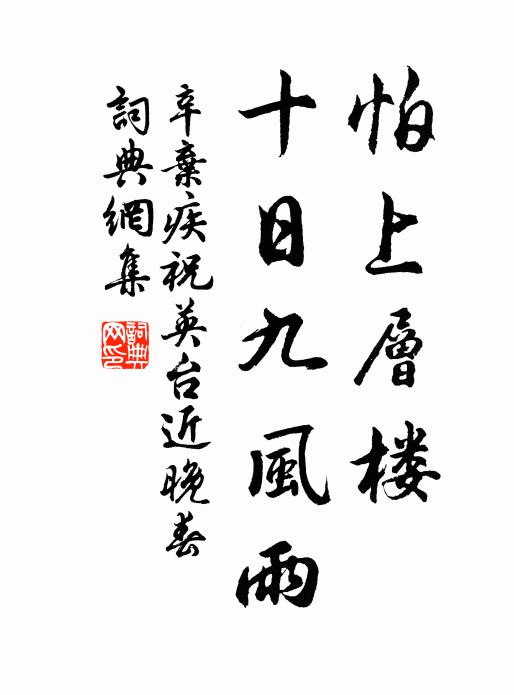 怕上層楼
十日九風雨
辛棄疾祝英台近晚春
詞典網集
詞典網印